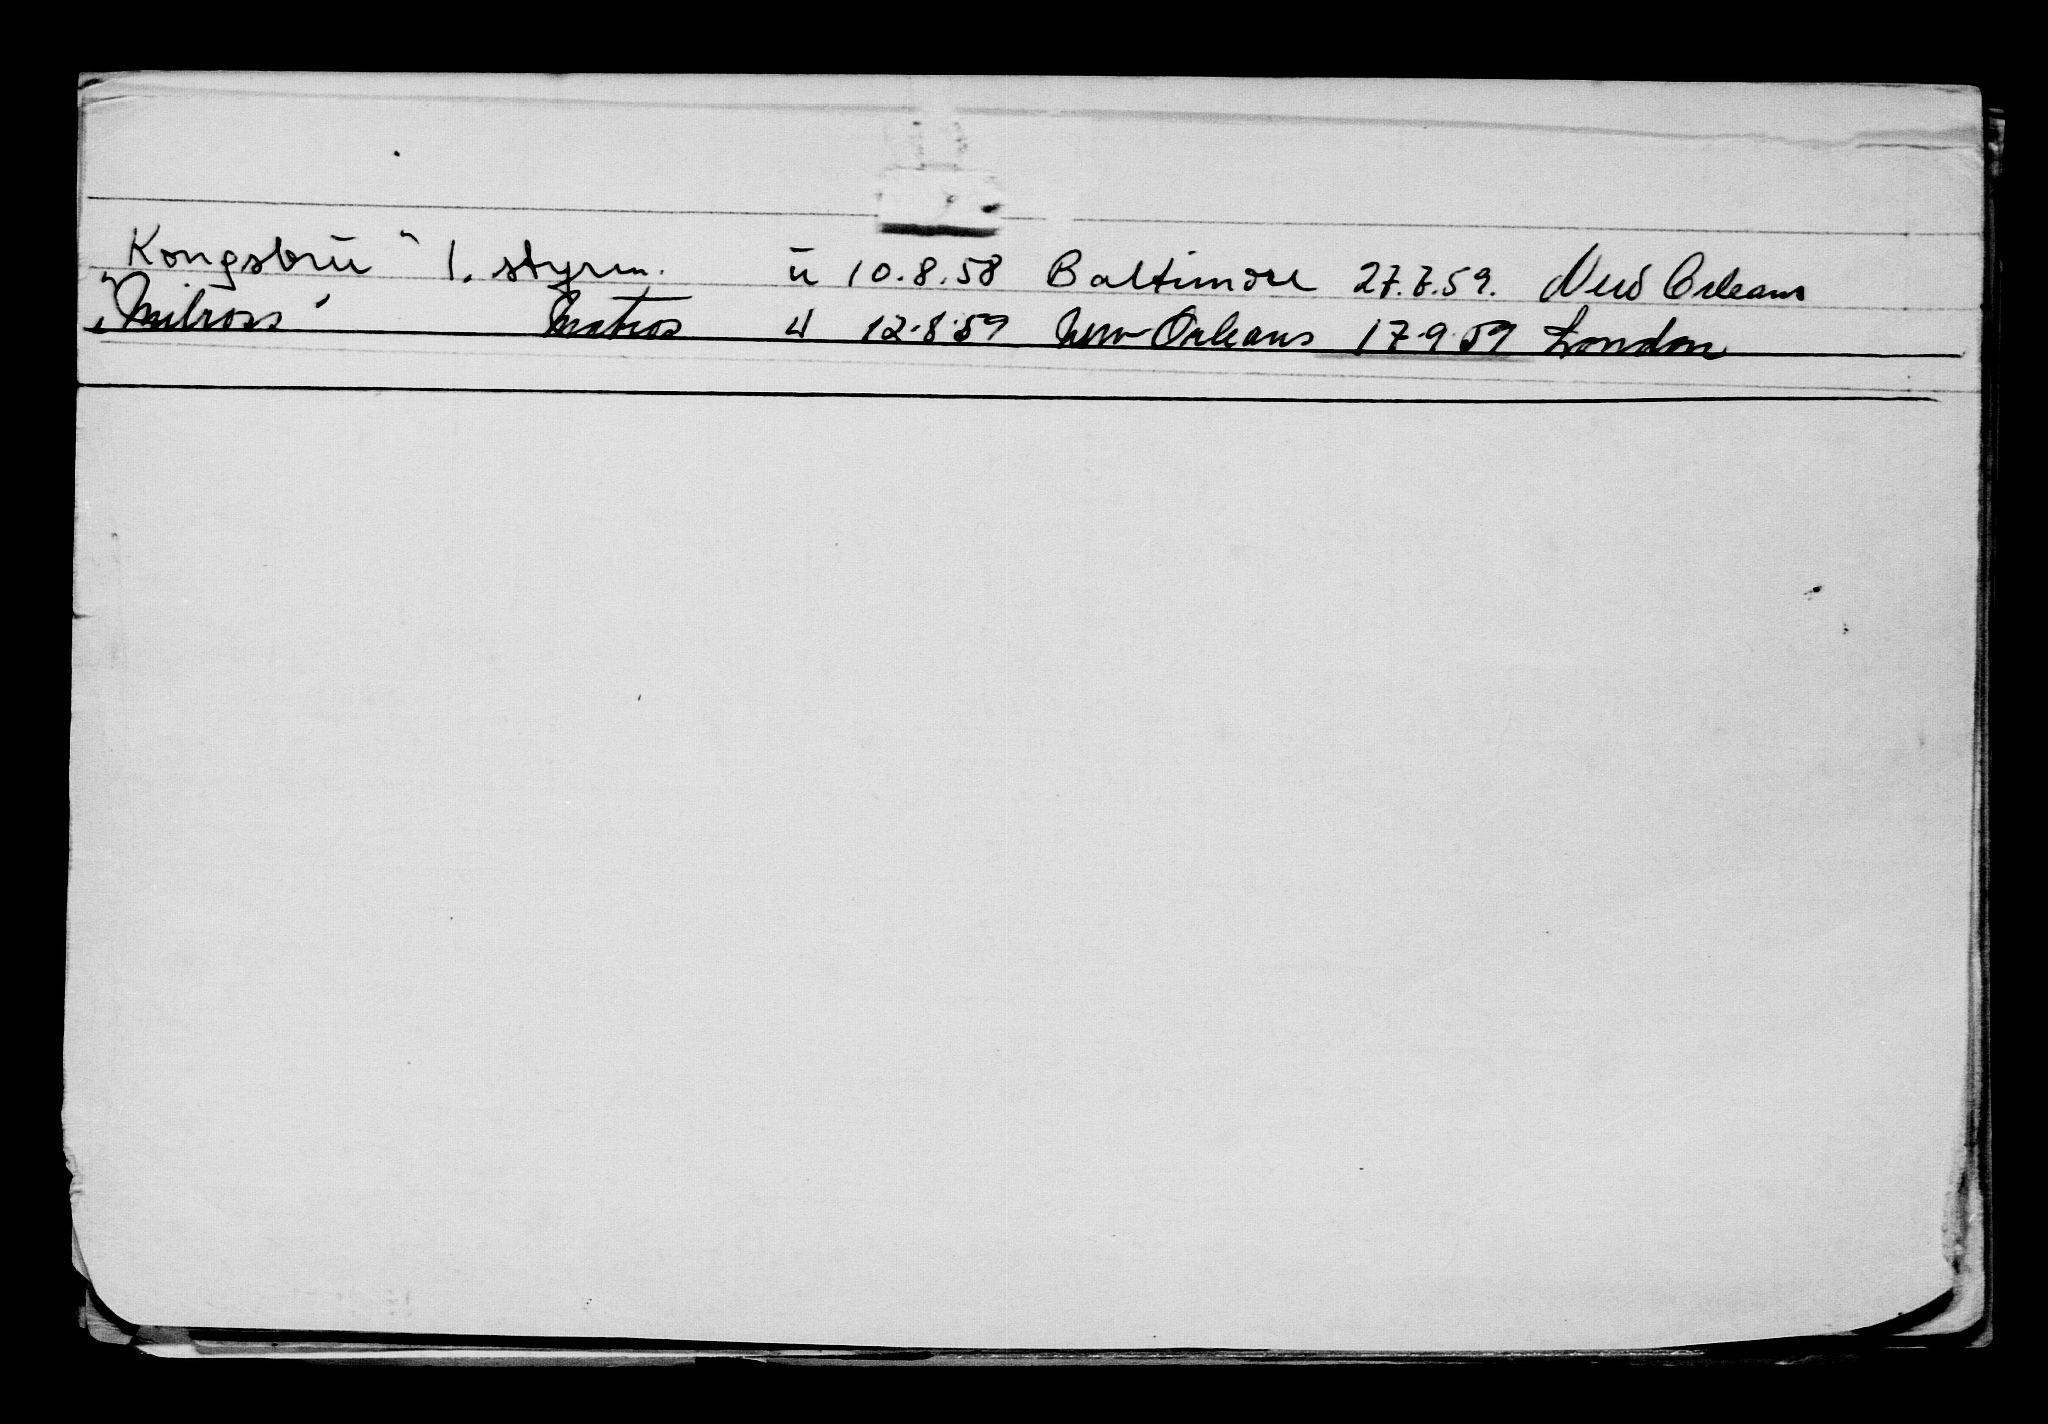 "Kongsbru" 1. styrm. u 10.8.58 Baltimore 27.7.59. New Orleans
"Milross" Matros u 12-8-59 New Orleans 17-9-59 London